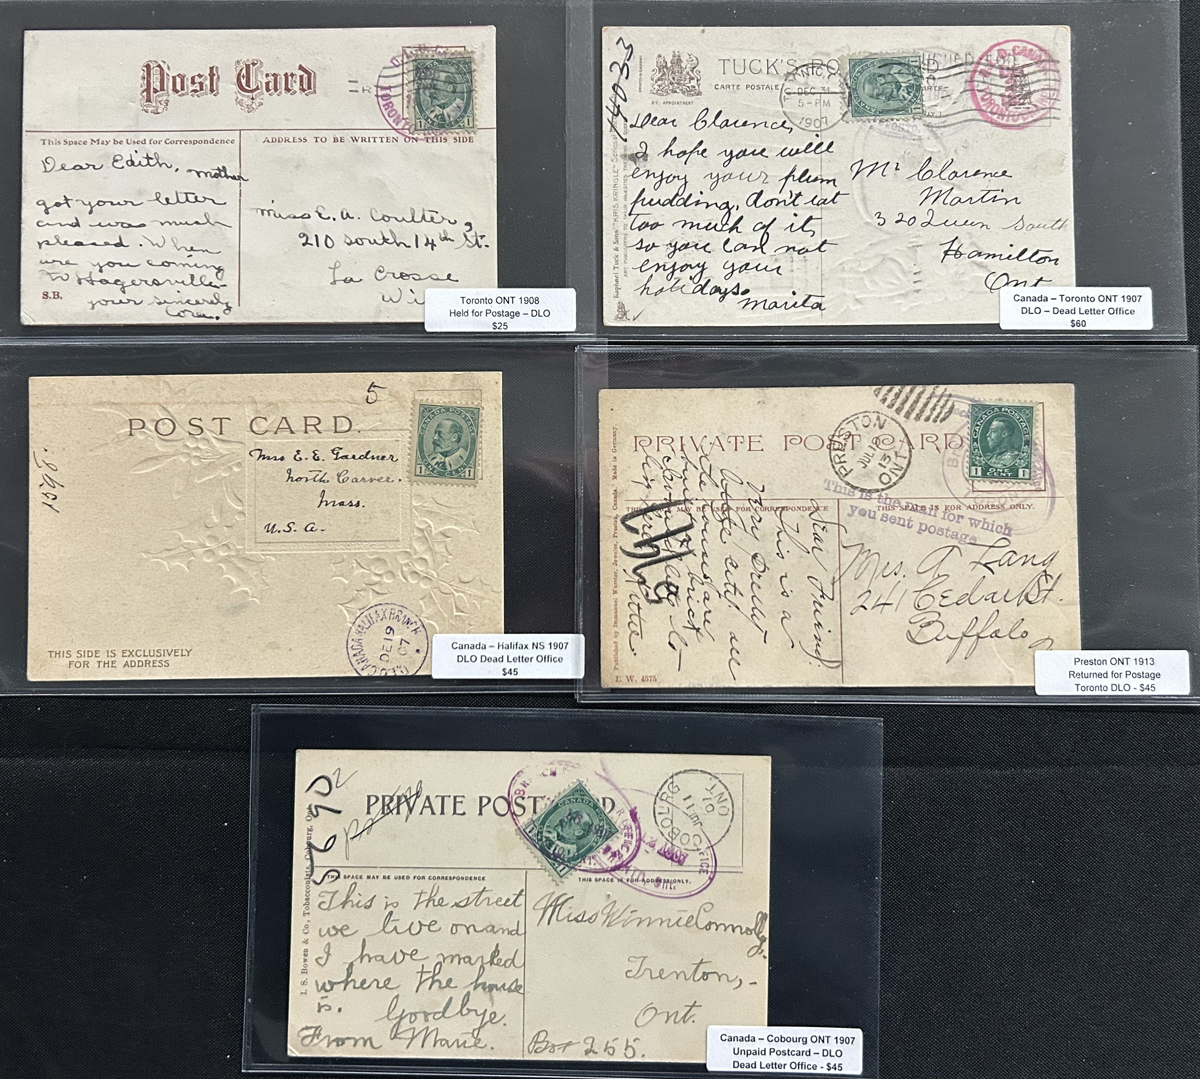 Post Card
This Space May be Used for Correspondence
ADDRESS TO BE WRITTEN ON THIS SIDE
Dear Edith, mother
got your letter
and was much
pleased. When
are you coming
to Hagersville
your sincerely
Cora.
S.B.
Miss E. A. Coulter,
210 South 14th St.
La Crosse
Wi
TORONTO
Toronto ONT 1908
Held for Postage – DLO
$25
14035
BY APPOINTMENT
TUCK'S PO
CARTE POSTALE
DEC 31
5 - PM
1907
Dear Clarence,
I hope you will
enjoy your plum
pudding, don't eat
too much of it,
so you can not
enjoy your
holidays.
Marita
Mr Clarence
Martin
320 Queen South
Hamilton
Ont
Canada – Toronto ONT 1907
DLO – Dead Letter Office
$60
5
POST CARD.
CANADA POSTAGE
Mrs E. E. Gardner
North Carver.
Mass.
U.S.A.
THIS SIDE IS EXCLUSIVELY
FOR THE ADDRESS
D.L.O. CANADA HALIFAX BRANCH
DE 19
07
Canada – Halifax NS 1907
DLO Dead Letter Office
$45
PRIVATE POST CARD
PRESTON
JUL 10
13
ONT.
CANADA POSTAGE
ONE CENT
THIS MAY BE USED FOR CORRESPONDENCE
THIS SPACE IS FOR ADDRESS ONLY.
This is the mail for which
you sent postage
Dear Friend:
This is a
very
city
Mrs. A Lang
241 Cedar St.
Buffalo
4575
Preston ONT 1913
Returned for Postage
Toronto DLO - $45
5690
2
PRIVATE POST RD
COBOURG
JUL 11
07
ONT
THE SPACE MAY BE USED FOR CORRESPONDENCE
THIS SPACE IS FOR ADDRESS ONLY.
I. S. Bowen & Co. Tobacconists, Cobourg, On
This is the street
we live on and
I have marked
where the house
is. Goodbye.
From Marie.
Miss Winnie Connolly,
Trenton,
Ont.
Box 255.
Canada – Cobourg ONT 1907
Unpaid Postcard – DLO
Dead Letter Office - $45